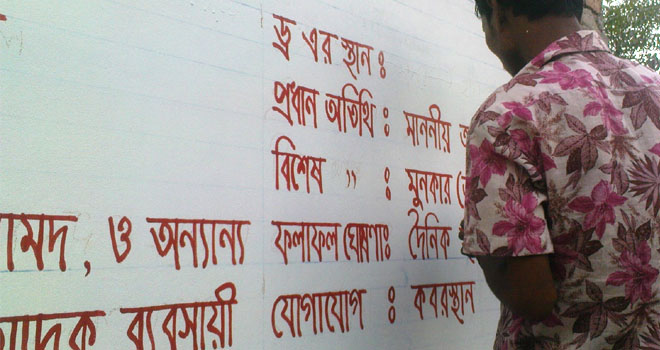 ড্র এর স্থান ঃ
প্রধান অতিথি ঃ মাননীয়
বিশেষ " ঃ মুনকার
ামদ, ও অন্যান্য ফলাফল ঘোষণাঃ দৈনিক
ব্যবসায়ী যোগাযোগ ঃ কবরস্থান